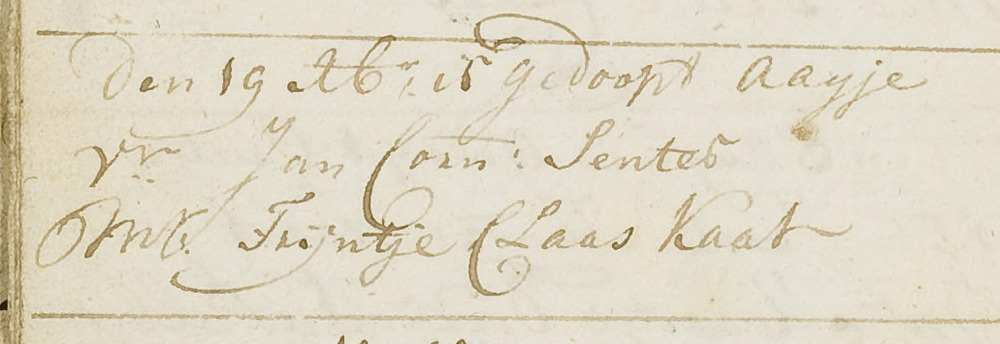 Den 19 Xbr: is gedoopt Aayje
vr: Jan Corn: Sentes
Mr. Trijntje Claas Kaat